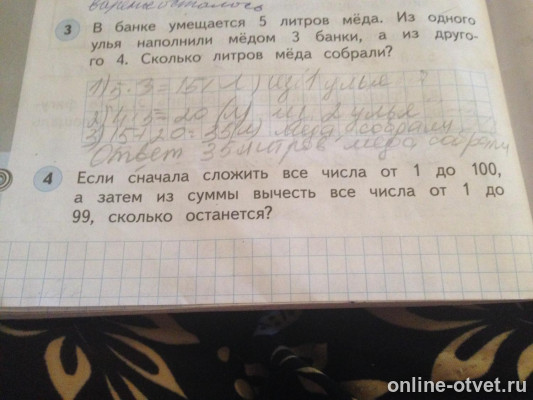 3 В банке умещается 5 литров мёда. Из одного
улья наполнили мёдом 3 банки, а из друго-
го 4. Сколько литров мёда собрали?
1) 5·3=15(л) из 1 улья
2) 4·5=20 (л) из 2 улья
3) 15+20=35(л) меда собрали
Ответ 35 литров меда собрали
4 Если сначала сложить все числа от 1 до 100,
а затем из суммы вычесть все числа от 1 до
99, сколько останется?
online-otvet.ru